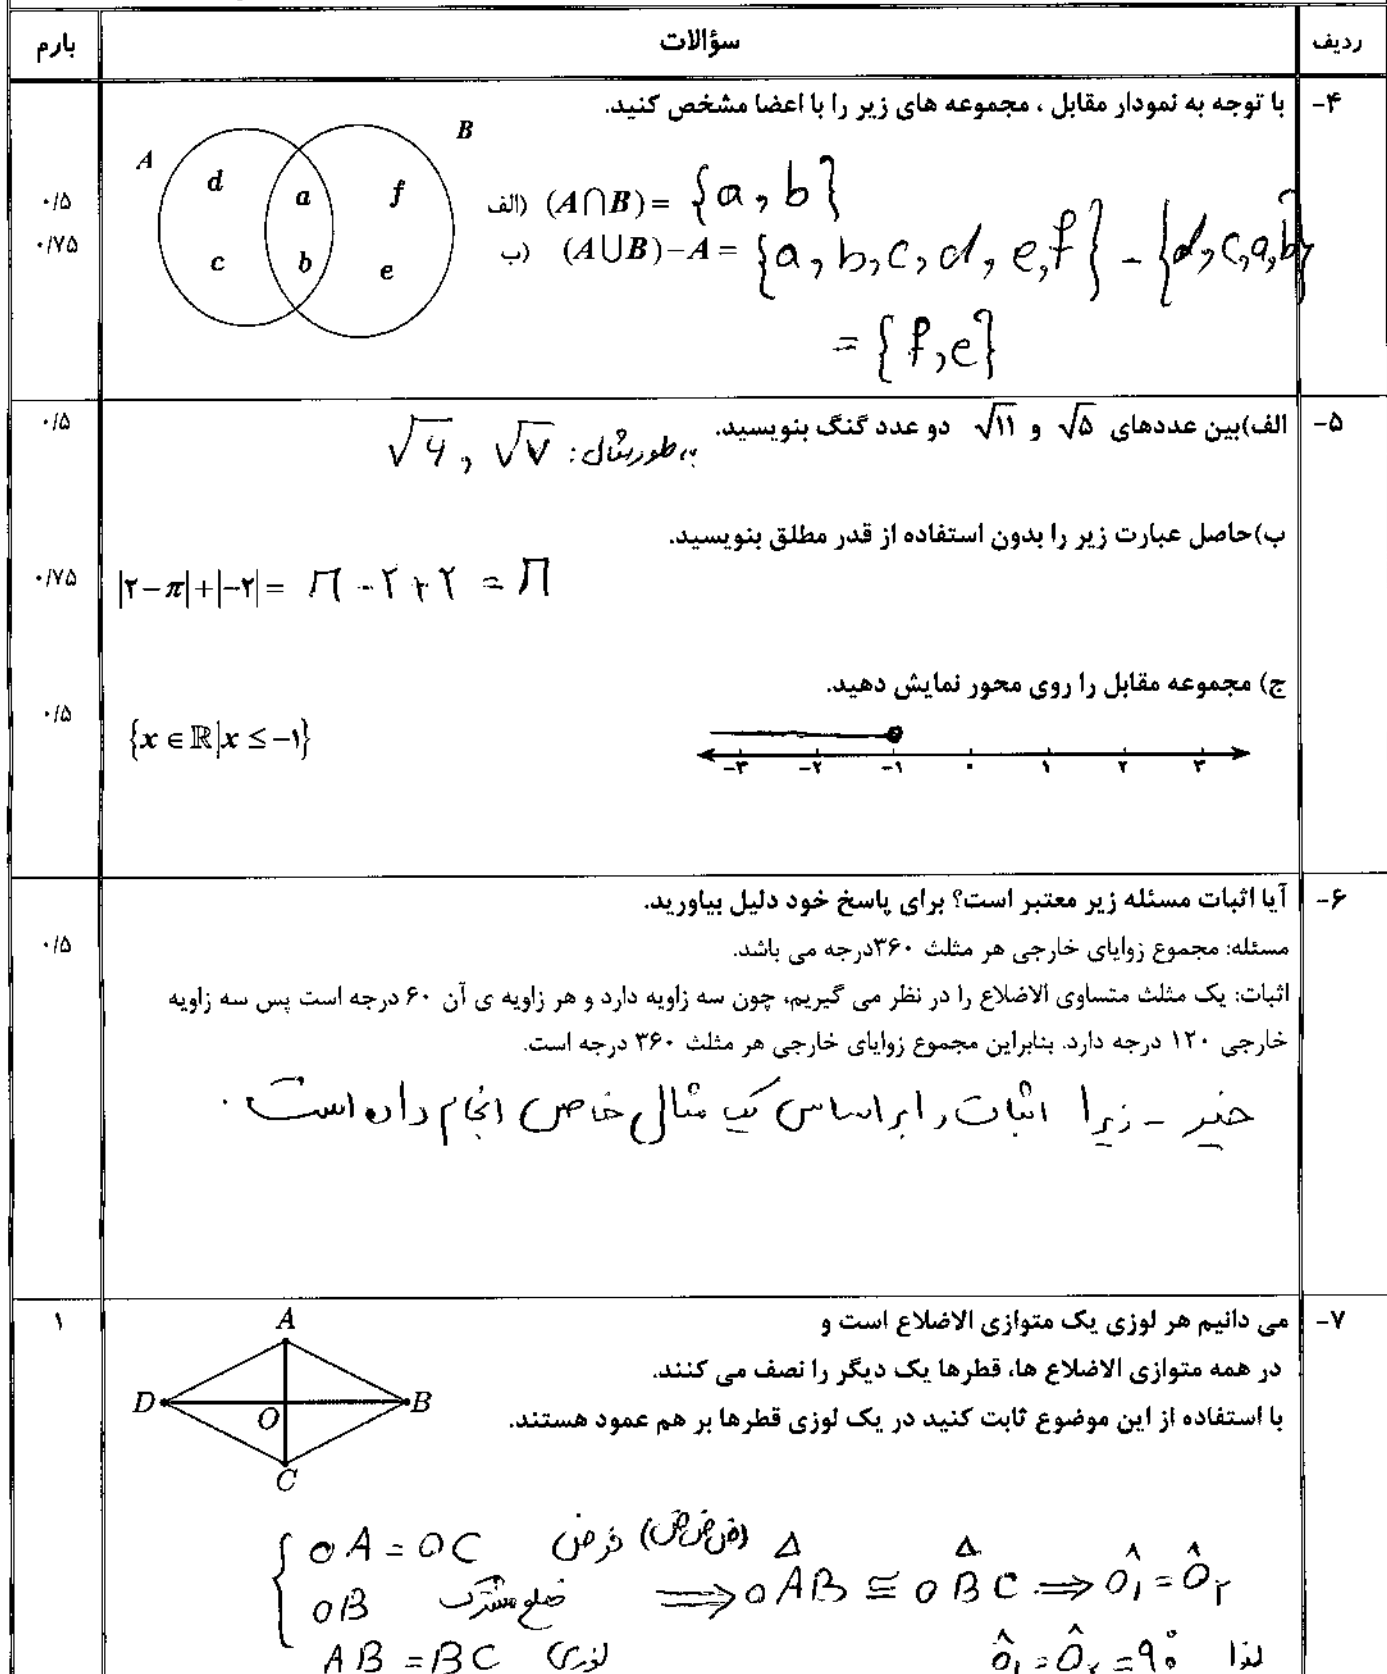 ردیف سؤالات بارم
۴- با توجه به نمودار مقابل ، مجموعه های زیر را با اعضا مشخص کنید.
A B d a f c b e
۰/۵ الف) (A∩B) = {a , b}
۰/۷۵ ب) (A∪B)-A = {a , b, c, d, e, f} - {d, c, a, b}
= {f, e}
۵- الف)بین عددهای √۵ و √۱۱ دو عدد گنگ بنویسید. به طور مثال: √۷ , √۶ ۰/۵
ب)حاصل عبارت زیر را بدون استفاده از قدر مطلق بنویسید.
۰/۷۵ |۲-π|+|-۲| = π - ۲ + ۲ = π
ج) مجموعه مقابل را روی محور نمایش دهید.
۰/۵ {x∈ℝ|x ≤ -۱}
-۳ -۲ -۱ ۰ ۱ ۲ ۳
۶- آیا اثبات مسئله زیر معتبر است؟ برای پاسخ خود دلیل بیاورید.
مسئله: مجموع زوایای خارجی هر مثلث ۳۶۰درجه می باشد. ۰/۵
اثبات: یک مثلث متساوی الاضلاع را در نظر می گیریم، چون سه زاویه دارد و هر زاویه ی آن ۶۰ درجه است پس سه زاویه
خارجی ۱۲۰ درجه دارد. بنابراین مجموع زوایای خارجی هر مثلث ۳۶۰ درجه است.
خیر - زیرا اثبات را بر اساس یک مثال خاص انجام داده است .
۷- می دانیم هر لوزی یک متوازی الاضلاع است و ۱
در همه متوازی الاضلاع ها، قطرها یک دیگر را نصف می کنند.
با استفاده از این موضوع ثابت کنید در یک لوزی قطرها بر هم عمود هستند.
A D B O C
OA = OC فرض (ض ض ض)
OB ضلع مشترک ⟹ OAB ≅ OBC ⟹ Ô₁ = Ô₂
AB = BC لوزی لذا Ô₁ = Ô₂ = 90°